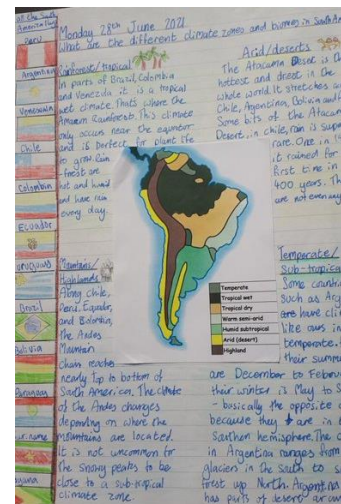 of the South
America Flag
Monday 28th June 2021
What are the different climate zones and biomes in South
Peru
Argentina
Venezuela
Chile
Colombia
Ecuador
Uruguay
Brazil
Bolivia
Paraguay
Suriname
Guyana
Rainforest/tropical
In parts of Brazil, Colombia
and Venezula it is a tropical
wet climate. Thats where the
Amazon Rainforest. This climate
only occurs near the equator
and is perfect for plant life
to grow. Rain
-forest are
hot and humid
and have rain
every day.
Mountains/
Highlands
Along Chile,
Peru, Equador,
and
The Andes
Mountain
Chain reaches
nearly top to bottom of
South America. The climate
of the Andes changes
depending on where the
mountains are located.
It is not uncommon for
the snowy peaks to be
close to a sub-tropical
climate zone
Arid/deserts
The Atacama Desert is the
hottest and driest in the
whole world. It stretches
Chile, Argentina, Bolivia and
Some bits of the Atacama
Desert, in chile, rain is
rare. One in
it rained for
first time in
400 years.
are not even any
Temperate/
sub-tropical
Some countries
such as
are have
like ours in
temperate.
their summer
are December to
their winter is May to
- basically the opposite
because they are in
Southen hemisphere. The
in Argentina ranges from
glaciers in the south to
forest up North. Argentina
has parts of desert
Temperate
Tropical wet
Tropical dry
Warm semi-arid
Humid subtropical
Arid (desert)
Highland